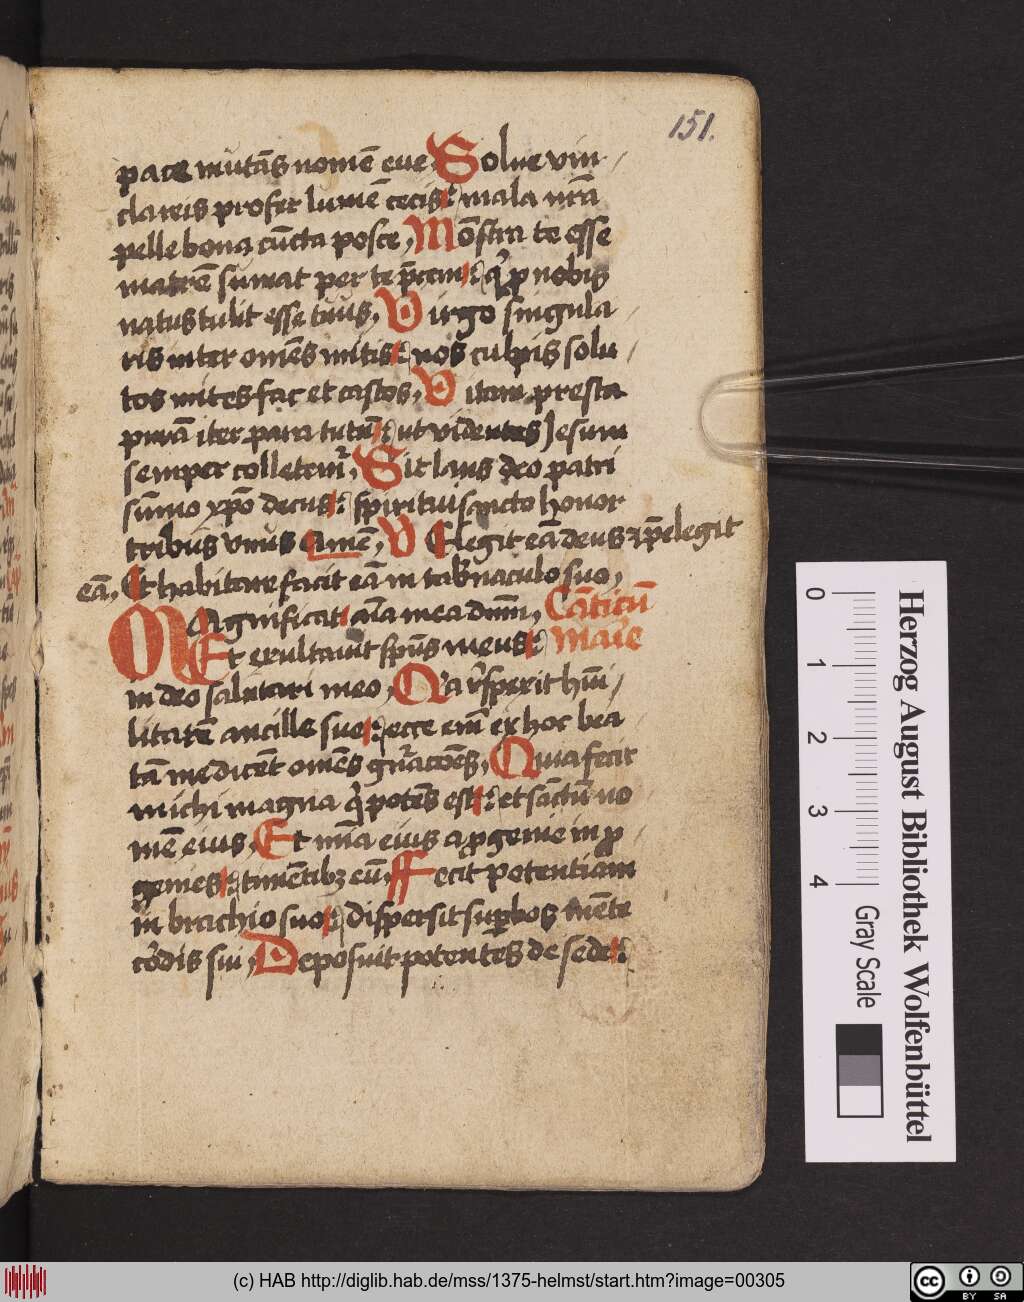 151.
pace mutās nomē eue Solue vin
clareis profer lumē cecis mala nrā
pelle bona cūcta posce, Mōstra te esse
matrē sumat per te p̄cem qͥ p nobis
natus tulit esse tuus, Virgo singula
ris inter omēs mitis nos culpis solu
tos mites fac et castos, Vitam presta
purā iter para tutū ut videntes Jesum
semper colletemͬ, Sit laus deo patri
sūmo xpō decus spiritui sancto honor
tribus vnus amē, V Elegit eā deus ⁊ p̄elegit
eā, Et habitare facit eā in tab̄naculo suo,
Magnificat aīa mea dnm, Cāticū
Et exultauit spūs meus Marie
in deo salutari meo, Qͥa rͤsperit hūi
litatē ancille sue ecce eīm ex hoc bea
tā me dicēt omēs gnͬacōes, Quia fecit
michi magna qͥ potēs est et sāctū no
mē eius, Et mīa eius a pgenie in p
genies timētibꝫ eū, Fecit potentiam
in brachio suo dispersit supbos mēte
cordis sui, Deposuit potentēs de sede
0 1 2 3 4
Gray Scale
Herzog August Bibliothek Wolfenbüttel
(c) HAB http://diglib.hab.de/mss/1375-helmst/start.htm?image=00305
cc BY SA